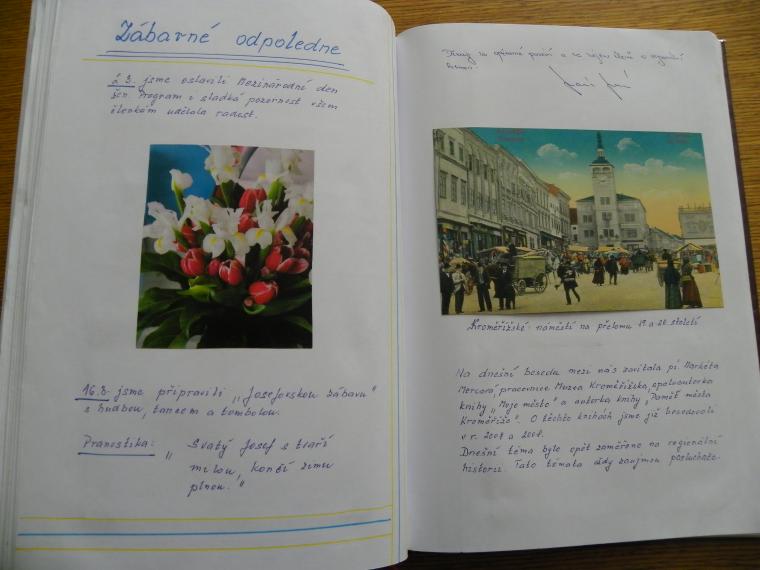 Zábavné odpoledne
8.3. jsme oslavili Mezinárodní den
žen. Program i sladká pozornost všem
členkám udělala radost.
16.3. jsme připravili „Josefovskou zábavu"
s hudbou, tancem a tombolou.
Pranostika: „ Svatý Josef s tváří
milou, končí zimu
plnou."
Kroměřížské náměstí na přelomu 19. a 20. století
Na dnešní besedu mezi nás zavítala pí. Markéta
Mercová pracovnice Muzea Kroměřížska, spoluautorka
knihy „Moje město" a autorka knihy „Paměť města
Kroměříže". O těchto knihách jsme již besedovali
v r. a
Dnešní téma bylo opět zaměřeno na regionální
historii. Tato témata vždy zaujmou posluchače.